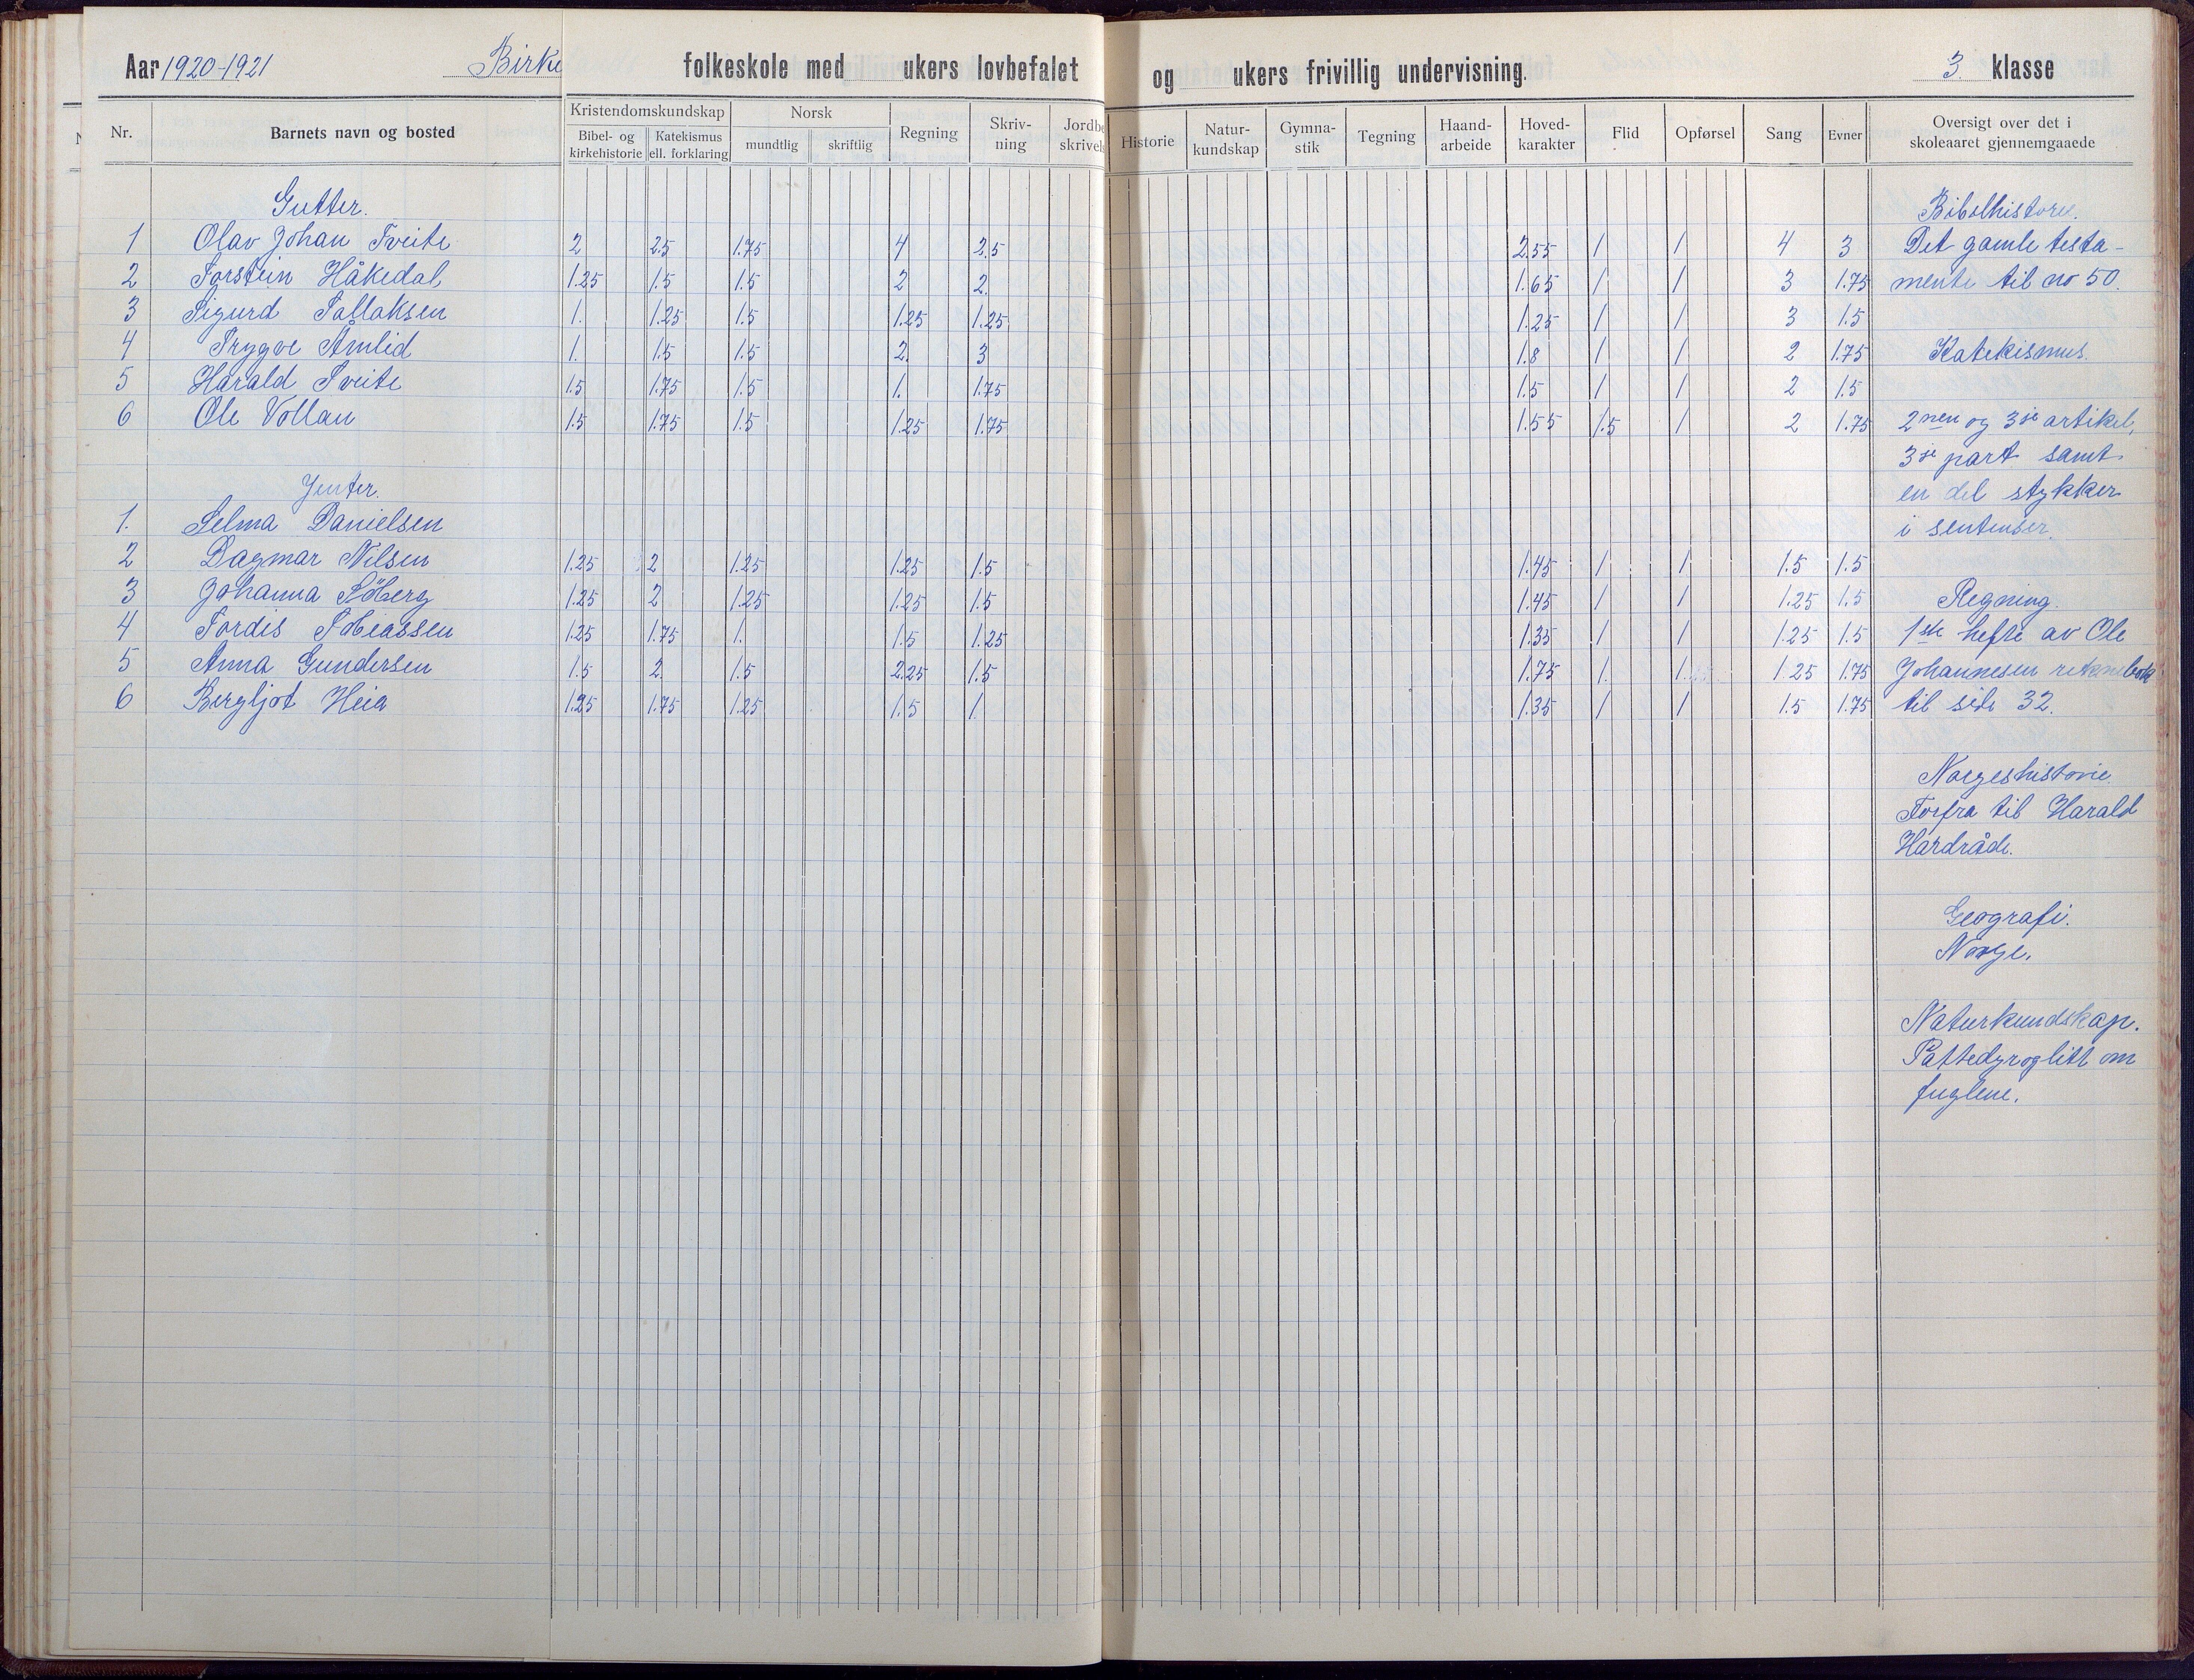 Aar 1920-1921 Birke folkeskole med ukers lovbefalet og ukers frivillig undervisning. 3. klasse
Nr. Barnets navn og bosted Kristendomskundskap Norsk Regning Skriv-ning Jordbe skrivels Historie Natur-kundskap Gymna-stik Tegning Haand-arbeide Hoved-karakter Flid Opførsel Sang Evner Oversigt over det i skoleaaret gjennemgaaede
Bibel- og kirkehistorie Katekismus ell. forklaring mundtlig skriftlig
Gutter.
1 Olav Johan Tveite 2 2.5 1.75 4 2.5 2.55 1 1 4 3
2 Torstein Håkedal 1.25 1.5 1.5 2 2. 1.65 1 1 3 1.75
3 Sigurd Tallaksen 1. 1.25 1.5 1.25 1.25 1.25 1 1 3 1.5
4 Trygve Åmlid 1. 1.5 1.5 2. 3 1.8 1 1 2 1.75
5 Harald Tveite 1.5 1.75 1.5 1. 1.75 1.5 1 1 2 1.5
6 Ole Vollan 1.5 1.75 1.5 1.25 1.75 1.55 1.5 1 2 1.75
Jenter.
1. Selma Danielsen
2 Dagmar Nilsen 1.25 2 1.25 1.25 1.5 1.45 1 1 1.5 1.5
3 Johanna Söberg 1.25 2 1.25 1.25 1.5 1.45 1 1 1.25 1.5
4 Tordis Tobiassen 1.25 1.75 1. 1.5 1.25 1.35 1 1 1.25 1.5
5 Anna Gundersen 1.5 2. 1.5 2.25 1.5 1.75 1. 1. 1.25 1.75
6 Bergljot Heia 1.25 1.75 1.25 1.5 1 1.35 1 1 1.5 1.75
Bibelhistorie.
Det gamle testa-
mente til no 50.
Katekismus.
2nen og 3je artikel,
3je part samt
en del stykker
i sentenser.
Regning.
1ste hefte av Ole
Johannesen reknebok
til side 32.
Norgeshistorie.
Forfra til Harald
Hardråde.
Geografi.
Norge.
Naturkundskap.
Pattedyr og litt om
fuglene.